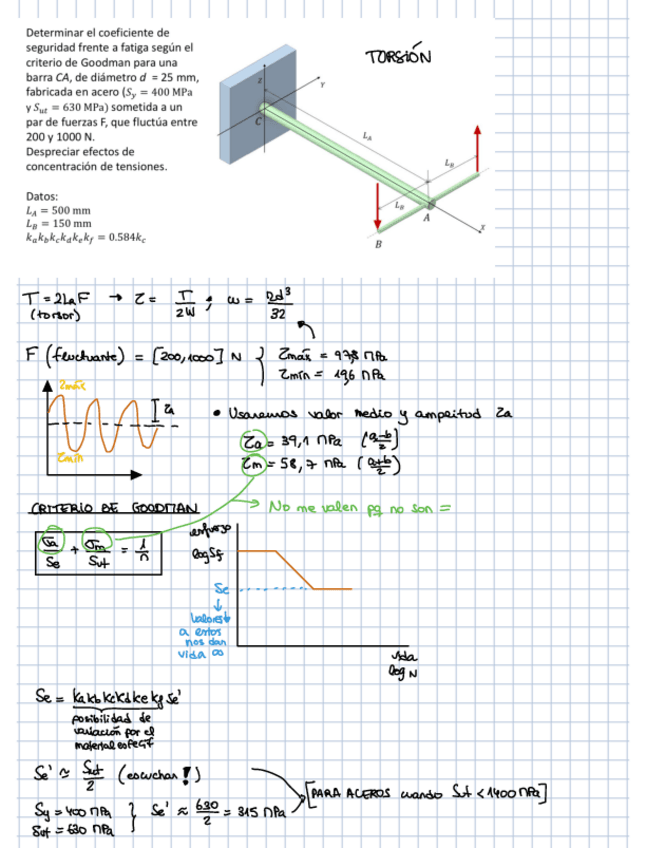 Determinar el coeficiente de
seguridad frente a fatiga según el
criterio de Goodman para una
barra CA, de diámetro d = 25 mm,
fabricada en acero (S_y = 400 MPa
y S_ut = 630 MPa) sometida a un
par de fuerzas F, que fluctúa entre
200 y 1000 N.
Despreciar efectos de
concentración de tensiones.
Datos:
L_A = 500 mm
L_B = 150 mm
k_a k_b k_c k_d k_e k_f = 0.584k_c
TORSIÓN
z
Y
C
L_A
L_B
L_B
A
x
B
T = 2L_BF → τ = T/2W ; w = πd³/32
(torsor)
F (fluctuante) = [200,1000] N } τmáx = 97,8 MPa
τmín = 19,6 MPa
τmáx
τa
τmín
• Usaremos valor medio y amplitud τa
τa = 39,1 MPa (a-b/2)
τm = 58,7 MPa (a+b/2)
CRITERIO DE GOODMAN
No me valen pq no son =
σa/Se + σm/Sut = 1/n
esfuerzo
log Sf
Se
↓
valores ↓
a estos
nos dan
vida ∞
vida
log N
Se = ka kb kc kd ke kf Se'
posibilidad de
variación por el
material
Se' ≈ Sut/2 (escuchar!)
[PARA ACEROS cuando Sut < 1400 MPa]
Sy = 400 MPa } Se' ≈ 630/2 = 315 MPa
Sut = 630 MPa